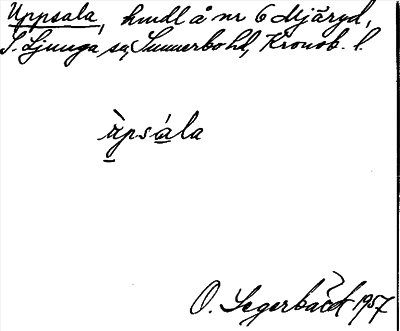 Uppsala, hmdl å nr 6 Mjäryd,
S. Ljunga sn, Sunnerbo hd, Kronob. l.
ùpsála
O. Segerbäck 1957